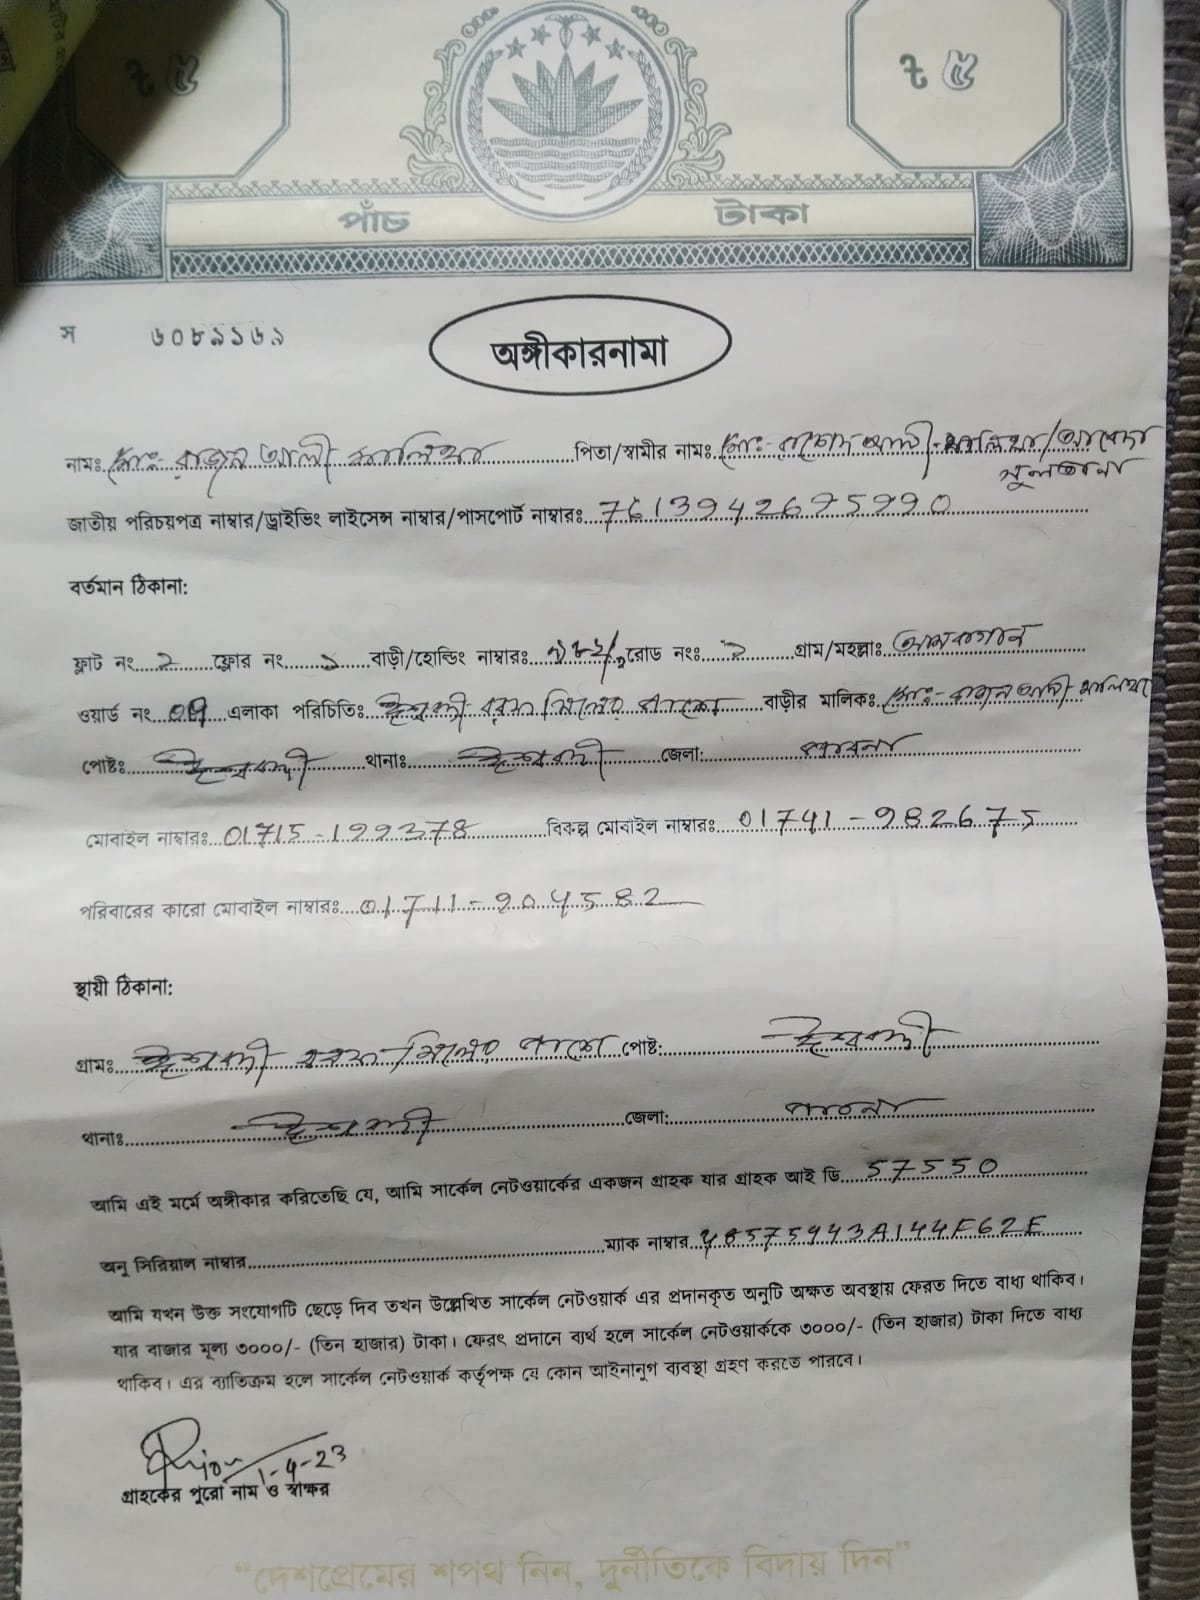 ৳ ৫ ৳ ৫
পাঁচ টাকা
স ৬০৮৯১৬৯
অঙ্গীকারনামা
নামঃ মোঃ রাজন আলী মালিথা পিতা/স্বামীর নামঃ মোঃ- আলী মালিথা/
সুলতানা
জাতীয় পরিচয়পত্র নাম্বার/ড্রাইভিং লাইসেন্স নাম্বার/পাসপোর্ট নাম্বারঃ
বর্তমান ঠিকানা:
ফ্লাট নং ২ ফ্লোর নং ১ বাড়ী/হোল্ডিং নাম্বারঃ রোড নংঃ ২ গ্রাম/মহল্লাঃ আমবাগান
ওয়ার্ড নং এলাকা পরিচিতিঃ ঈশ্বরদী বরফ মিলের পাশে বাড়ীর মালিকঃ মোঃ- রাজন আলী মালিথা
পোষ্টঃ ঈশ্বরদী থানাঃ ঈশ্বরদী জেলা: পাবনা
মোবাইল নাম্বারঃ 01715-199378 বিকল্প মোবাইল নাম্বারঃ 01741-982675
পরিবারের কারো মোবাইল নাম্বারঃ 01711-904582
স্থায়ী ঠিকানা:
গ্রামঃ ঈশ্বরদী বরফ মিলের পাশে পোষ্ট: ঈশ্বরদী
থানাঃ ঈশ্বরদী জেলা: পাবনা
আমি এই মর্মে অঙ্গীকার করিতেছি যে, আমি সার্কেল নেটওয়ার্কের একজন গ্রাহক যার গ্রাহক আই ডি 57550
অনু সিরিয়াল নাম্বার ম্যাক নাম্বার 48575443A144F62E
আমি যখন উক্ত সংযোগটি ছেড়ে দিব তখন উল্লেখিত সার্কেল নেটওয়ার্ক এর প্রদানকৃত অনুটি অক্ষত অবস্থায় ফেরত দিতে বাধ্য থাকিব।
যার বাজার মূল্য ৩০০০/- (তিন হাজার) টাকা। ফেরৎ প্রদানে ব্যর্থ হলে সার্কেল নেটওয়ার্ককে ৩০০০/- (তিন হাজার) টাকা দিতে বাধ্য
থাকিব। এর ব্যতিক্রম হলে সার্কেল নেটওয়ার্ক কর্তৃপক্ষ যে কোন আইনানুগ ব্যবস্থা গ্রহণ করতে পারবে।
1-4-23
গ্রাহকের পুরো নাম ও স্বাক্ষর
“দেশপ্রেমের শপথ নিন, দুর্নীতিকে বিদায় দিন”